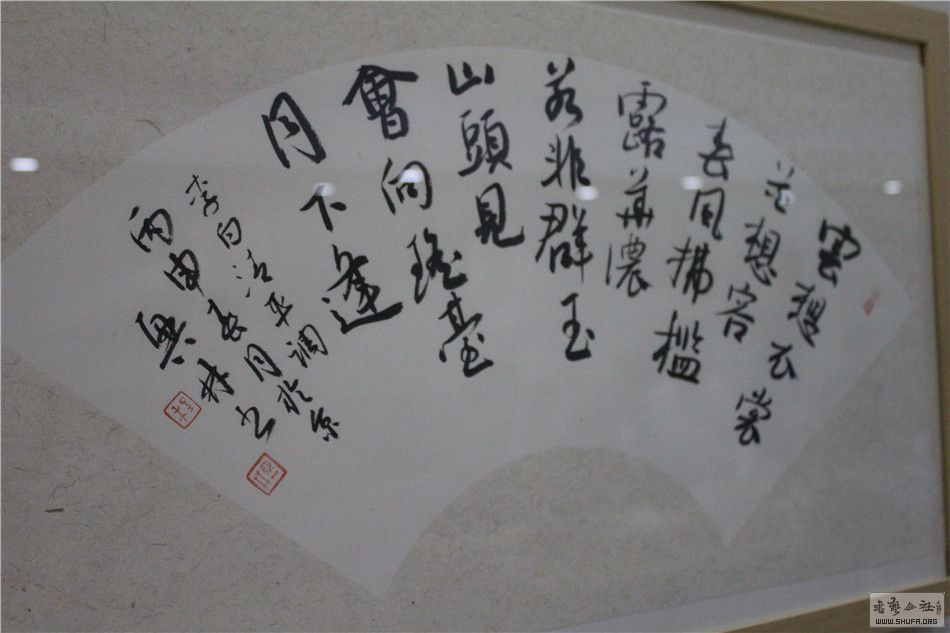 雲想衣裳
花想容
春風拂檻
露華濃
若非群玉
山頭見
會向瑤臺
月下逢
李白清平调
丙申春月於京
興林书
WWW.SHUFA.ORG